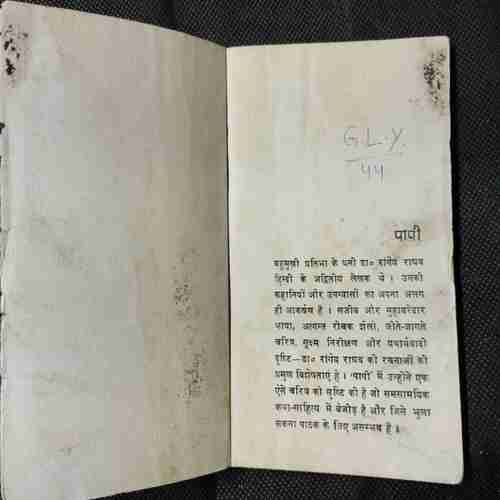 G.L.Y.
44
पापी
बहुमुखी प्रतिभा के धनी डा० रांगेय राघव
हिन्दी के अद्वितीय लेखक थे । उनकी
कहानियों और उपन्यासों का अपना अलग
ही आकर्षण है । सजीव और मुहावरेदार
भाषा, अत्यन्त रोचक शैली, जीते-जागते
चरित्र, सूक्ष्म निरीक्षण और यथार्थवादी
दृष्टि—डा० रांगेय राघव की रचनाओं की
प्रमुख विशेषताएं हैं । 'पापी' में उन्होंने एक
ऐसे चरित्र की सृष्टि की है जो समसामयिक
कथा-साहित्य में बेजोड़ है और जिसे भुला
सकना पाठक के लिए असम्भव है ।